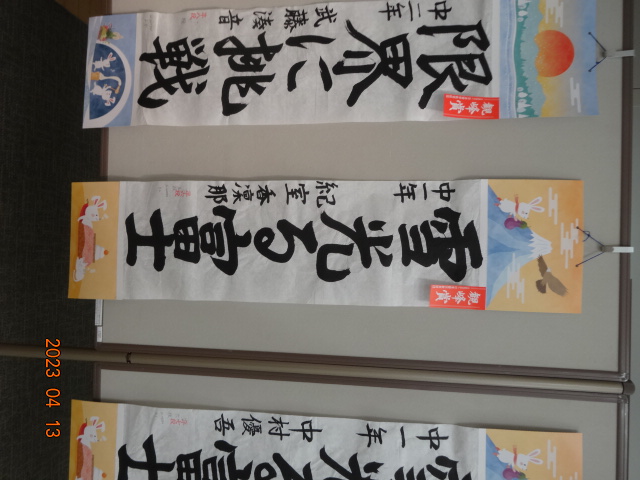 限界に挑戦
中二年 武藤湊音
観峰賞
雪光る富士
中一年 紀室香凛那
観峰賞
雪光る富士
中一年 中村優吾
2023 04 13